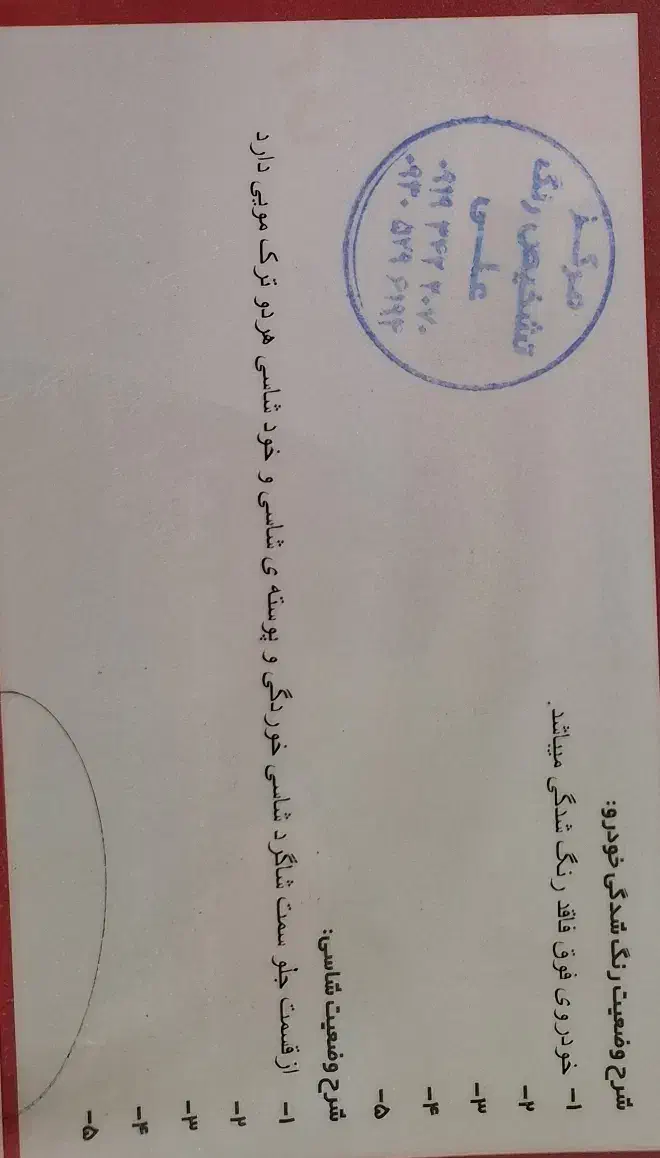 شرح وضعیت رنگ شدگی خودرو:
۱- خودروی فوق فاقد رنگ شدگی میباشد.
۲-
۳-
۴-
۵-
شرح وضعیت شاسی:
۱- از قسمت جلو سمت شاگرد شاسی خوردگی و پوسته ی شاسی و خود شاسی هردو ترک مویی دارد
۲-
۳-
۴-
۵-
مرکز
تشخیص رنگ
علی